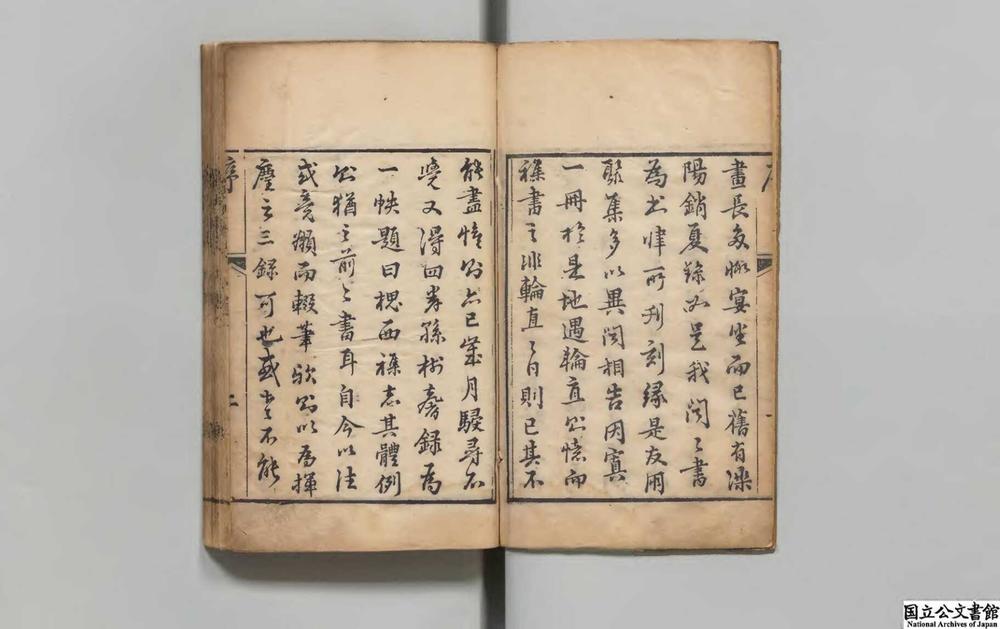 晝長多暇宴坐而已舊有灤
陽銷夏錄如是我聞二書
為書肆所刊刻緣是友朋
聚集多以異聞相告因寘
一冊於是地遇輪直則憶而
雜書之非輪直之日則已其不
能盡憶則亦已歲月駸尋不
覺又得四卷孫樹馨錄為
一帙題曰槐西雜志其體例
則猶之前二書耳自今以往
或竟嬾而輟筆歟則以為揮
麈之三錄可也或老不能
序 二
国立公文書館
National Archives of Japan